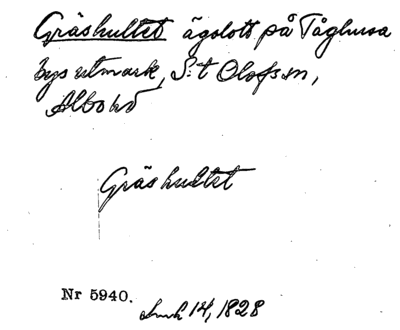 Gräshultet ägolott på Tåghusa
bys utmark, S:t Olofs sn,
Albo hd
Gräshultet
Nr 5940.
14, 1828